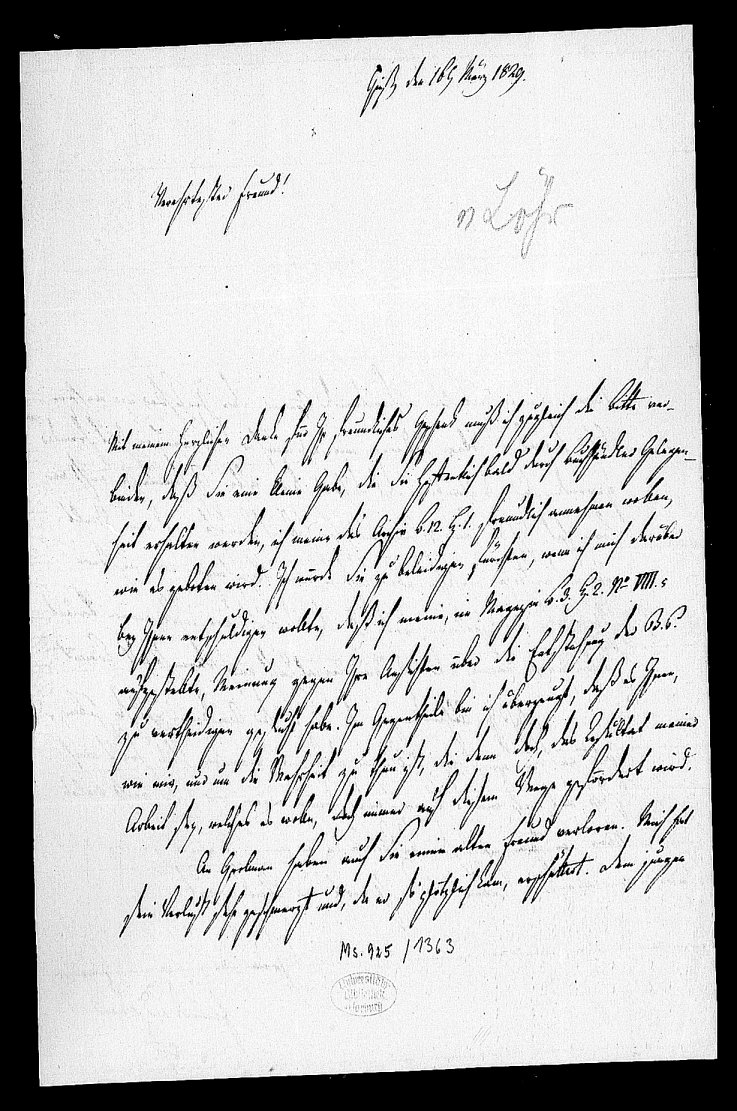 Gießen den 16t März 1829.
Verehrtester Freund!
v Löhr
Mit meinem herzlichen Danke für Ihr freundliches Geschenk muß ich zugleich die Bitte ver-
binden, daß Sie eine kleine Gabe, die Sie hoffentlich bald durch Buchhändler Gelegen-
heit erhalten werden, ich meine das Archiv B. 12. H. 1. freundlich annehmen wollen,
wie es geboten wird. Ich würde Sie zu beleidigen fürchten, wenn ich mich darüber
bey Ihnen entschuldigen wollte, daß ich meine, im Magazin B. 3. H. 2. No VIII.
aufgestellte, Meinung gegen Ihre Ansichten über die Entstehung der B. P.
zu vertheidigen gesucht habe. Im Gegentheile bin ich überzeugt, daß es Ihnen,
wie mir, nur um die Wahrheit zu thun ist, die denn doch, das Resultat meiner
Arbeit sey, welches es wolle, doch immer auf diesem Wege gefördert wird.
An Grolman haben auch Sie einen alten Freund verloren. Mich hat
sein Verlust sehr geschmerzt und, da er so plötzlich kam, erschüttert. Dem jungen
Ms. 925 / 1363
Universitäts
Bibliothek
Marburg